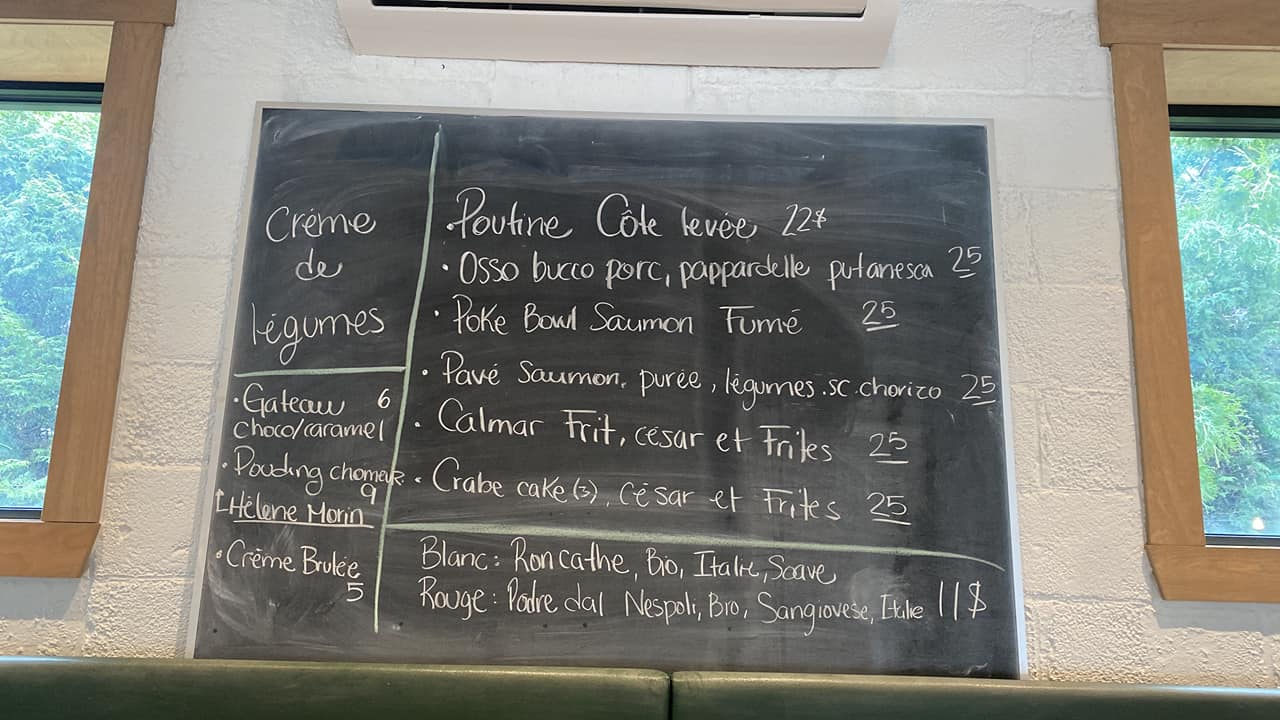 Crème
de
légumes
• Gateau 6
choco/caramel
• Pouding chomeur
9
Hélène Morin
• Crème Brulée
5
• Poutine Côte levée 22$
• Osso bucco porc, pappardelle putanesca 25
• Poke Bowl Saumon Fumé 25
• Pavé Saumon, purée, légumes.sc.chorizo 25
• Calmar Frit, césar et Frites 25
• Crabe cake (3), césar et Frites 25
Blanc: Roncathe, Bio, Italie, Soave
Rouge: Padre dal Nespoli, Bio, Sangiovese, Italie 11$